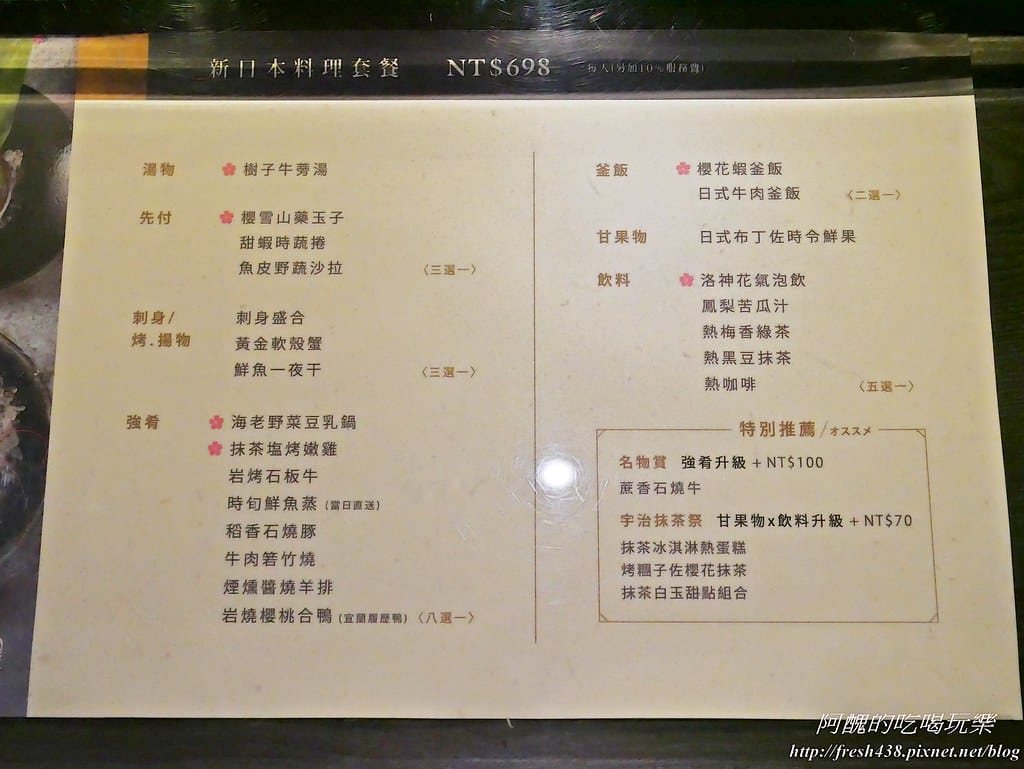 新日本料理套餐 NT$698 每人(另加10%服務費)
湯物 樹子牛蒡湯
先付 櫻雪山藥玉子
甜蝦時蔬捲
魚皮野蔬沙拉 〈三選一〉
刺身/ 刺身盛合
烤.揚物 黃金軟殼蟹
鮮魚一夜干 〈三選一〉
強肴 海老野菜豆乳鍋
抹茶塩烤嫩雞
岩烤石板牛
時旬鮮魚蒸 (當日直送)
稻香石燒豚
牛肉箬竹燒
煙燻醬燒羊排
岩燒櫻桃合鴨 (宜蘭履歷鴨) 〈八選一〉
釜飯 櫻花蝦釜飯
日式牛肉釜飯 〈二選一〉
甘果物 日式布丁佐時令鮮果
飲料 洛神花氣泡飲
鳳梨苦瓜汁
熱梅香綠茶
熱黑豆抹茶
熱咖啡 〈五選一〉
特別推薦/オススメ
名物賞 強肴升級 + NT$100
蔗香石燒牛
宇治抹茶祭 甘果物x飲料升級 + NT$70
抹茶冰淇淋熱蛋糕
烤糰子佐櫻花抹茶
抹茶白玉甜點組合
阿醜的吃喝玩樂
http://fresh438.pixnet.net/blog